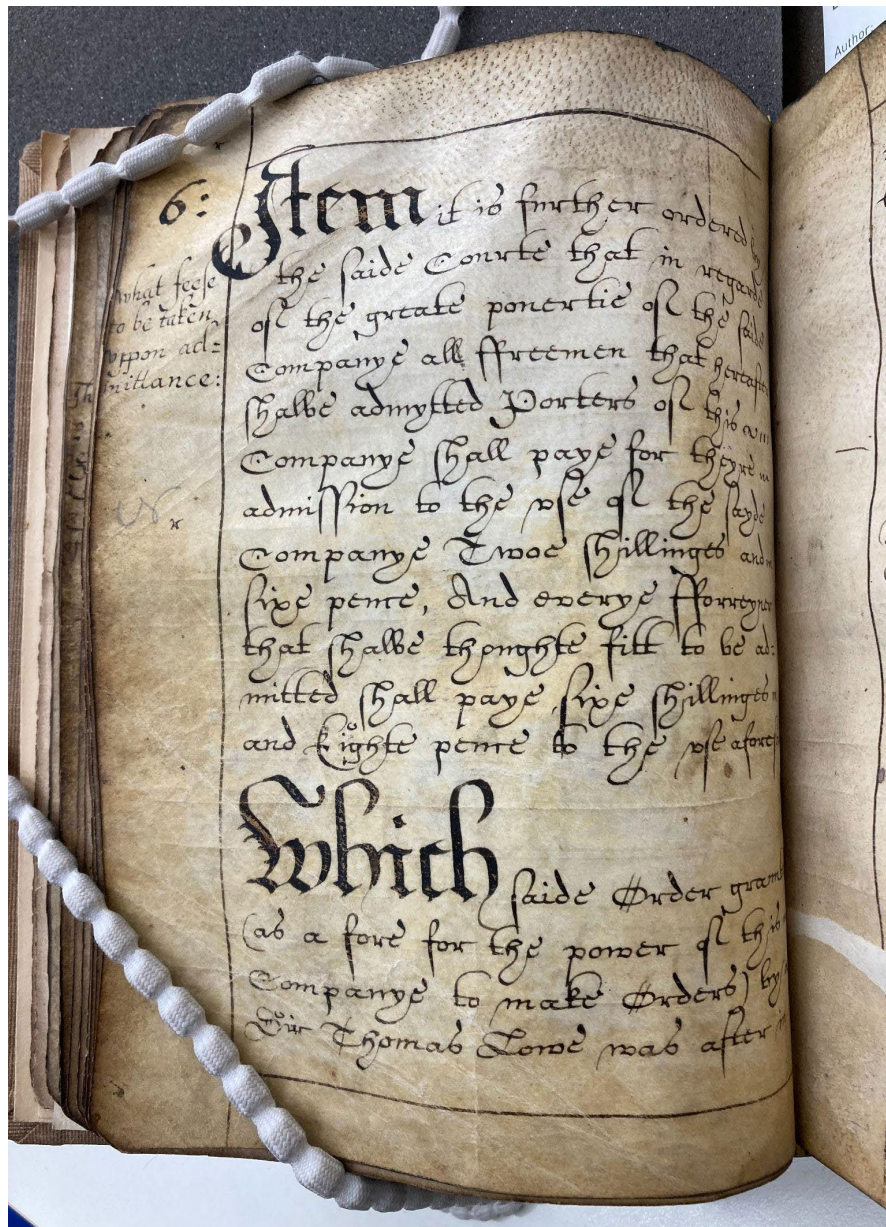 Author:
6:
Item it is further ordered by
the saide Courte that in regarde
of the greate pouertie of the saide
Companye all ffreemen that hereafter
shalbe admytted Porters of this
Companye shall paye for theyre
admission to the vse of the sayde
Companye Twoe shillinges and
sixe pence, And everye fforreyner
that shalbe thoughte fitt to be ad:
mitted shall paye sixe shillinges
and Eighte pence to the vse afores
what feese
to be taken
vppon ad:
mittance:
Which saide Order graun
(as a fore for the power of this
Companye to make Orders) by
Sir Thomas Lowe was after in